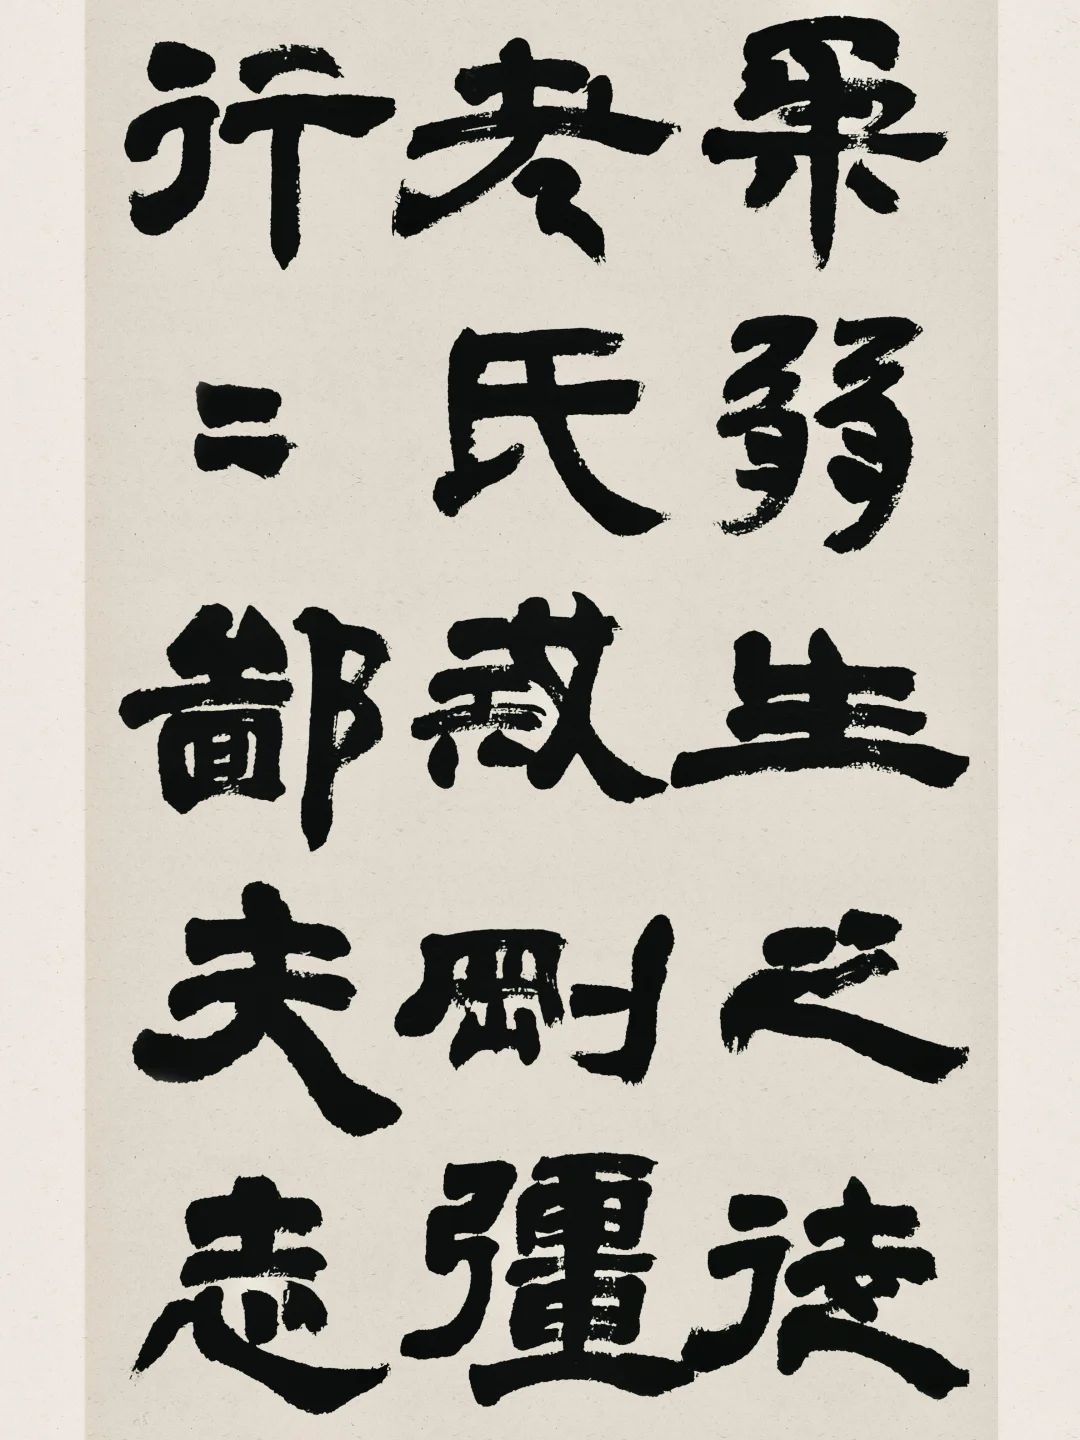 柔弱生之徒
老氏戒剛彊
行〻鄙夫志